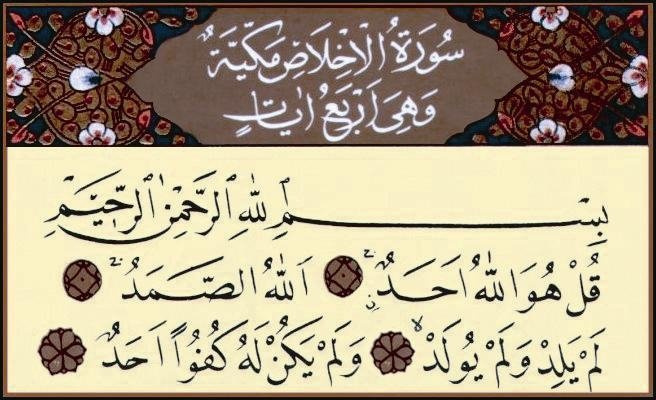 سُورَةُ الْاِخْلَاصِ مَكِّيَّةٌ
وَهِيَ اَرْبَعُ اٰيَاتٍ
بِسْمِ اللّٰهِ الرَّحْمٰنِ الرَّحِيمِ
قُلْ هُوَ اللّٰهُ اَحَدٌ ۚ اَللّٰهُ الصَّمَدُ ۚ
لَمْ يَلِدْ وَلَمْ يُولَدْ ۙ وَلَمْ يَكُنْ لَهُ كُفُوًا اَحَدٌ